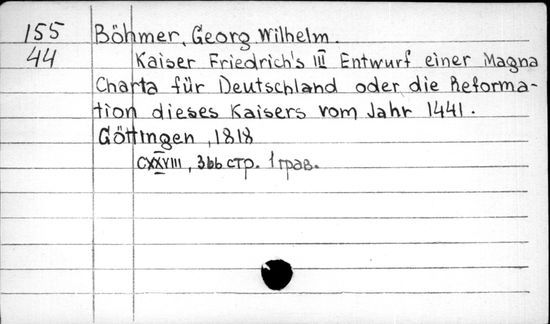 155 Böhmer, Georg Wilhelm.
44 Kaiser Friedrich's III Entwurf einer Magna
Charta für Deutschland oder die Reforma-
tion dieses Kaisers vom Jahr 1441.
Göttingen, 1818
CXXVIII, 366 стр. 1 грав.